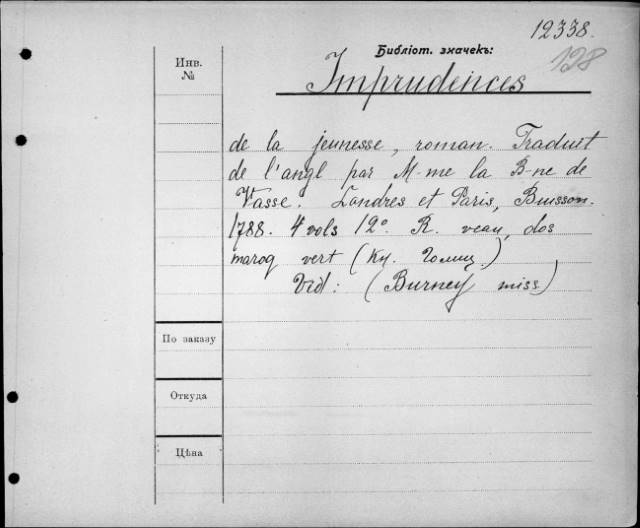 12338.
Библіот. значекъ:
128
Инв.
№
Imprudences
de la jeunesse, roman. Traduit
de l'angl par M-me la B-ne de
Vasse. Londres et Paris, Buisson.
1788. 4 vols 12°. R. veau, dos
maroq vert (Кн. Голиц.)
Vid: (Burney miss)
По заказу
Откуда
Цѣна